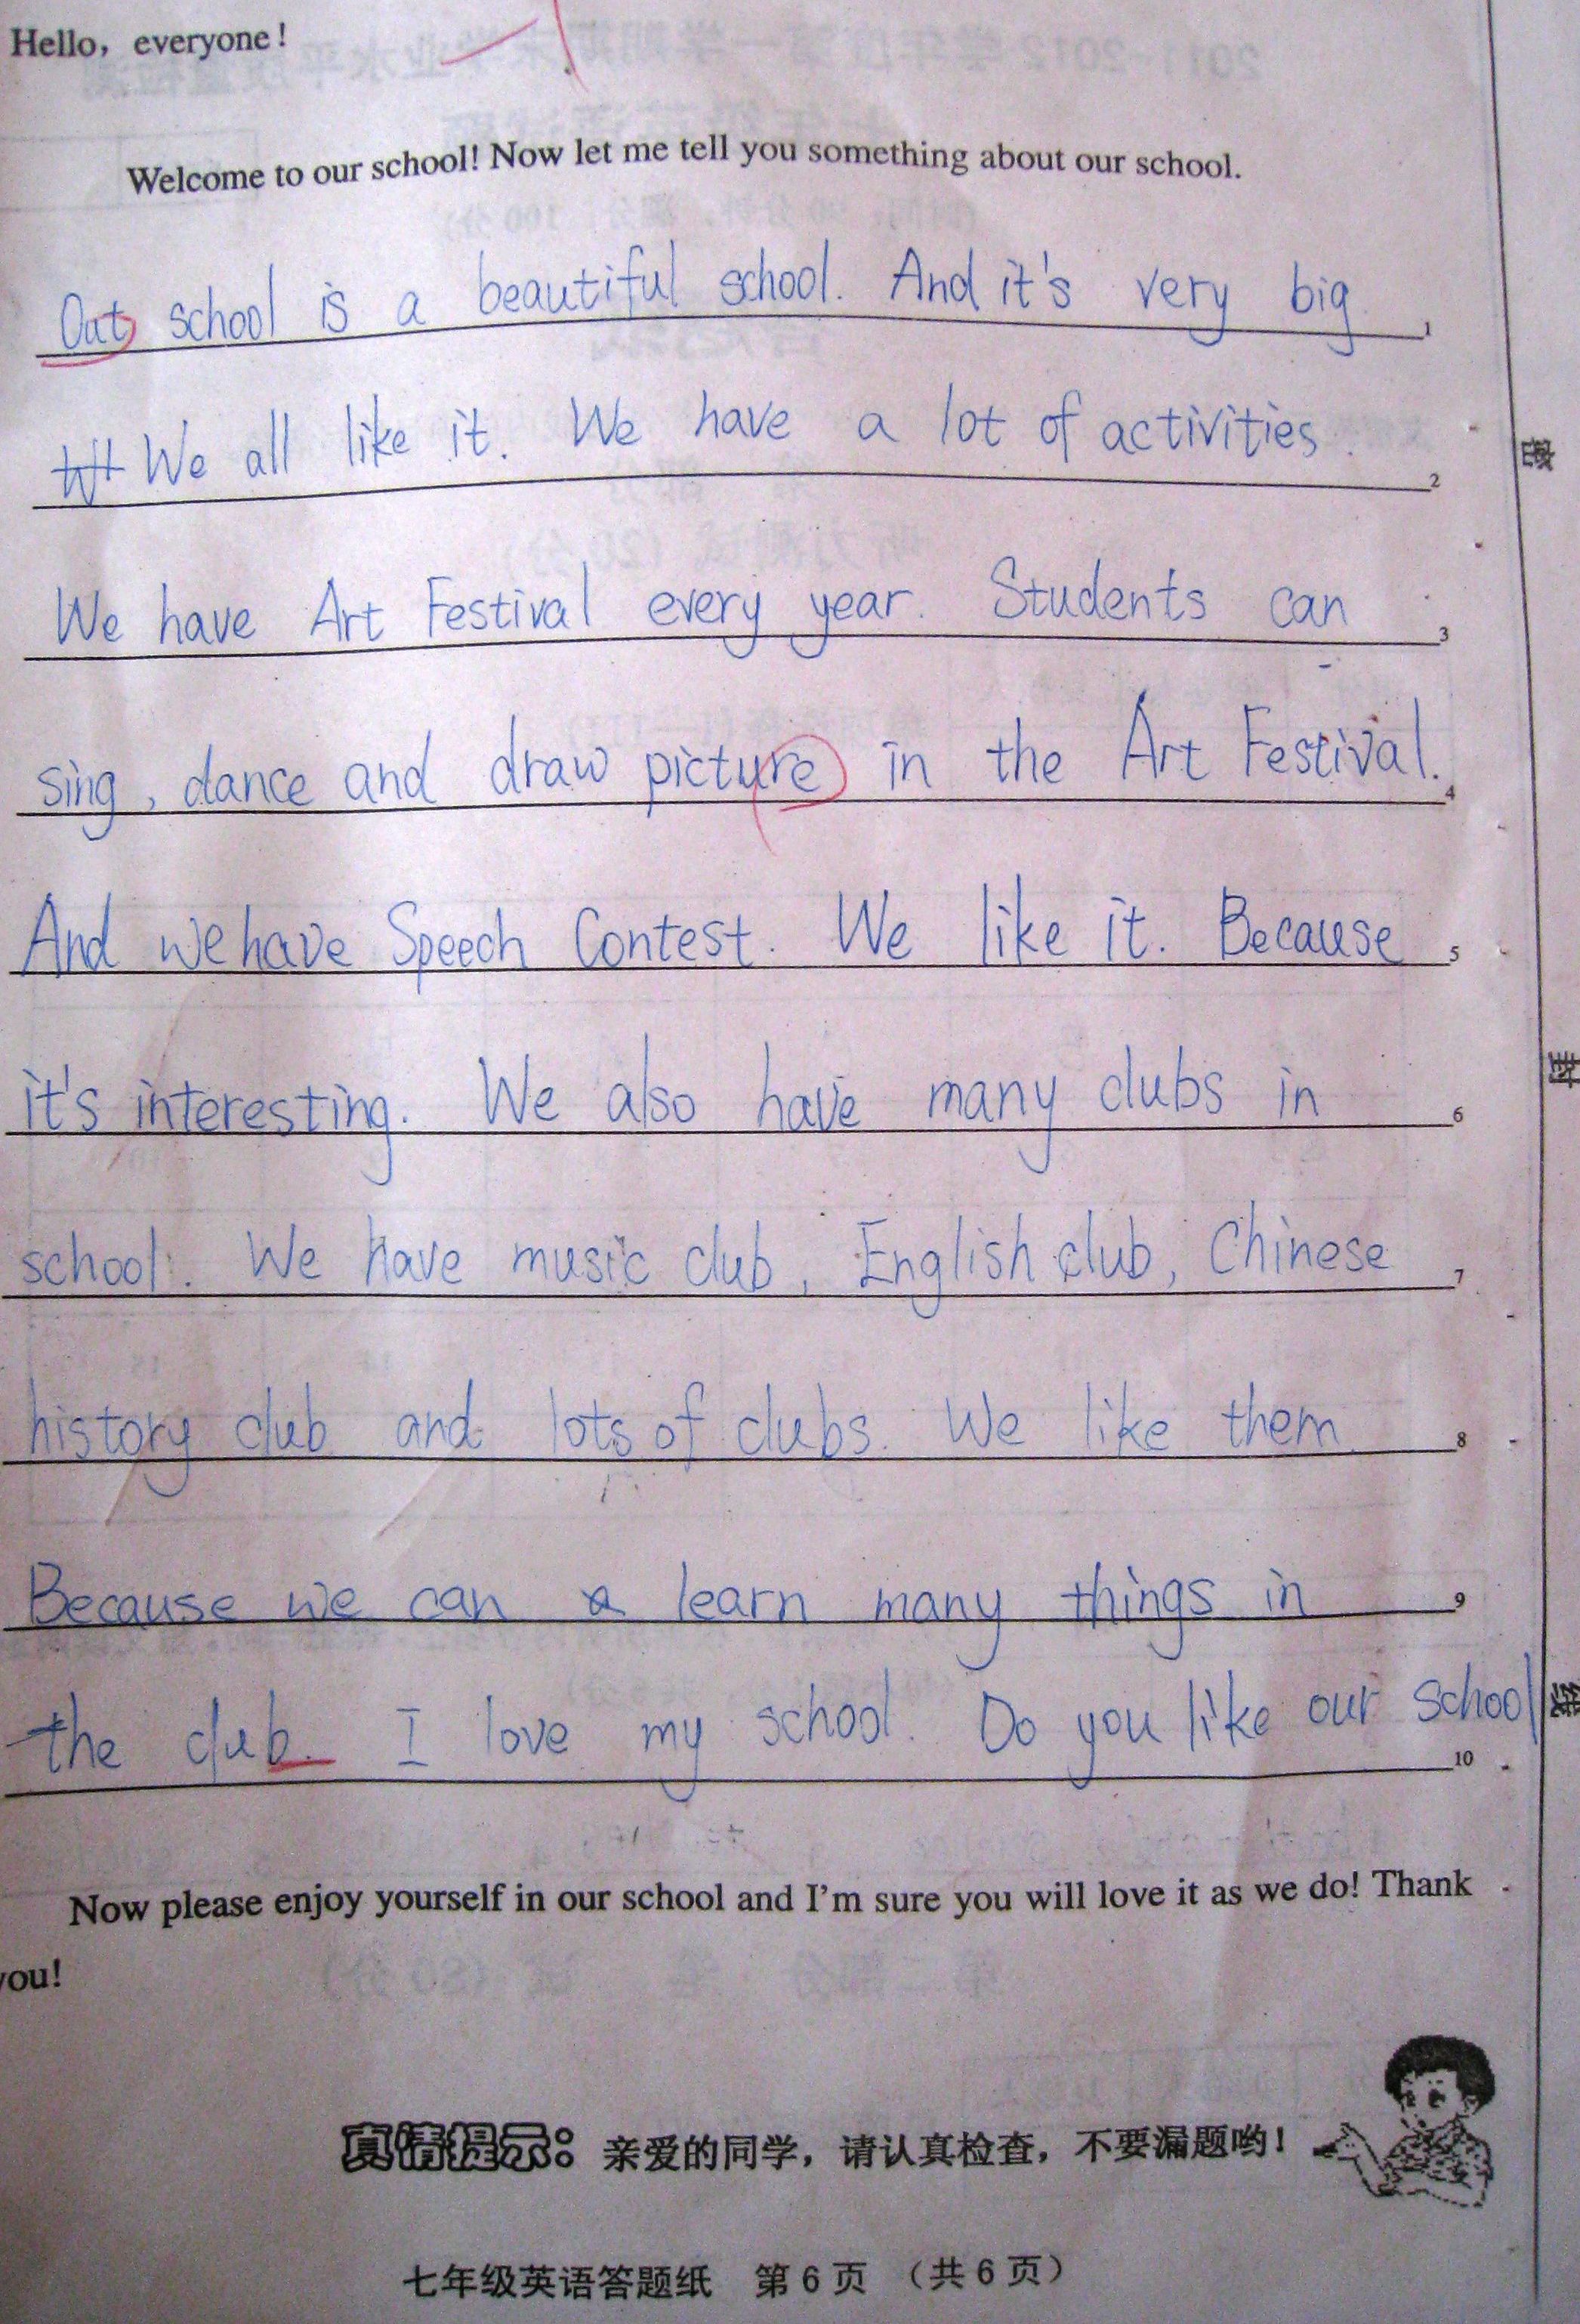 Hello, everyone!
Welcome to our school! Now let me tell you something about our school.
Out school is a beautiful school. And it's very big. 1
We all like it. We have a lot of activities. 2
We have Art Festival every year. Students can 3
sing, dance and draw picture in the Art Festival. 4
And we have Speech Contest. We like it. Because 5
it's interesting. We also have many clubs in 6
school. We have music club, English club, Chinese 7
history club and lots of clubs. We like them. 8
Because we can learn many things in 9
the club. I love my school. Do you like our school 10
Now please enjoy yourself in our school and I'm sure you will love it as we do! Thank
you!
真情提示：亲爱的同学，请认真检查，不要漏题哟！
七年级英语答题纸 第6页 （共6页）
封